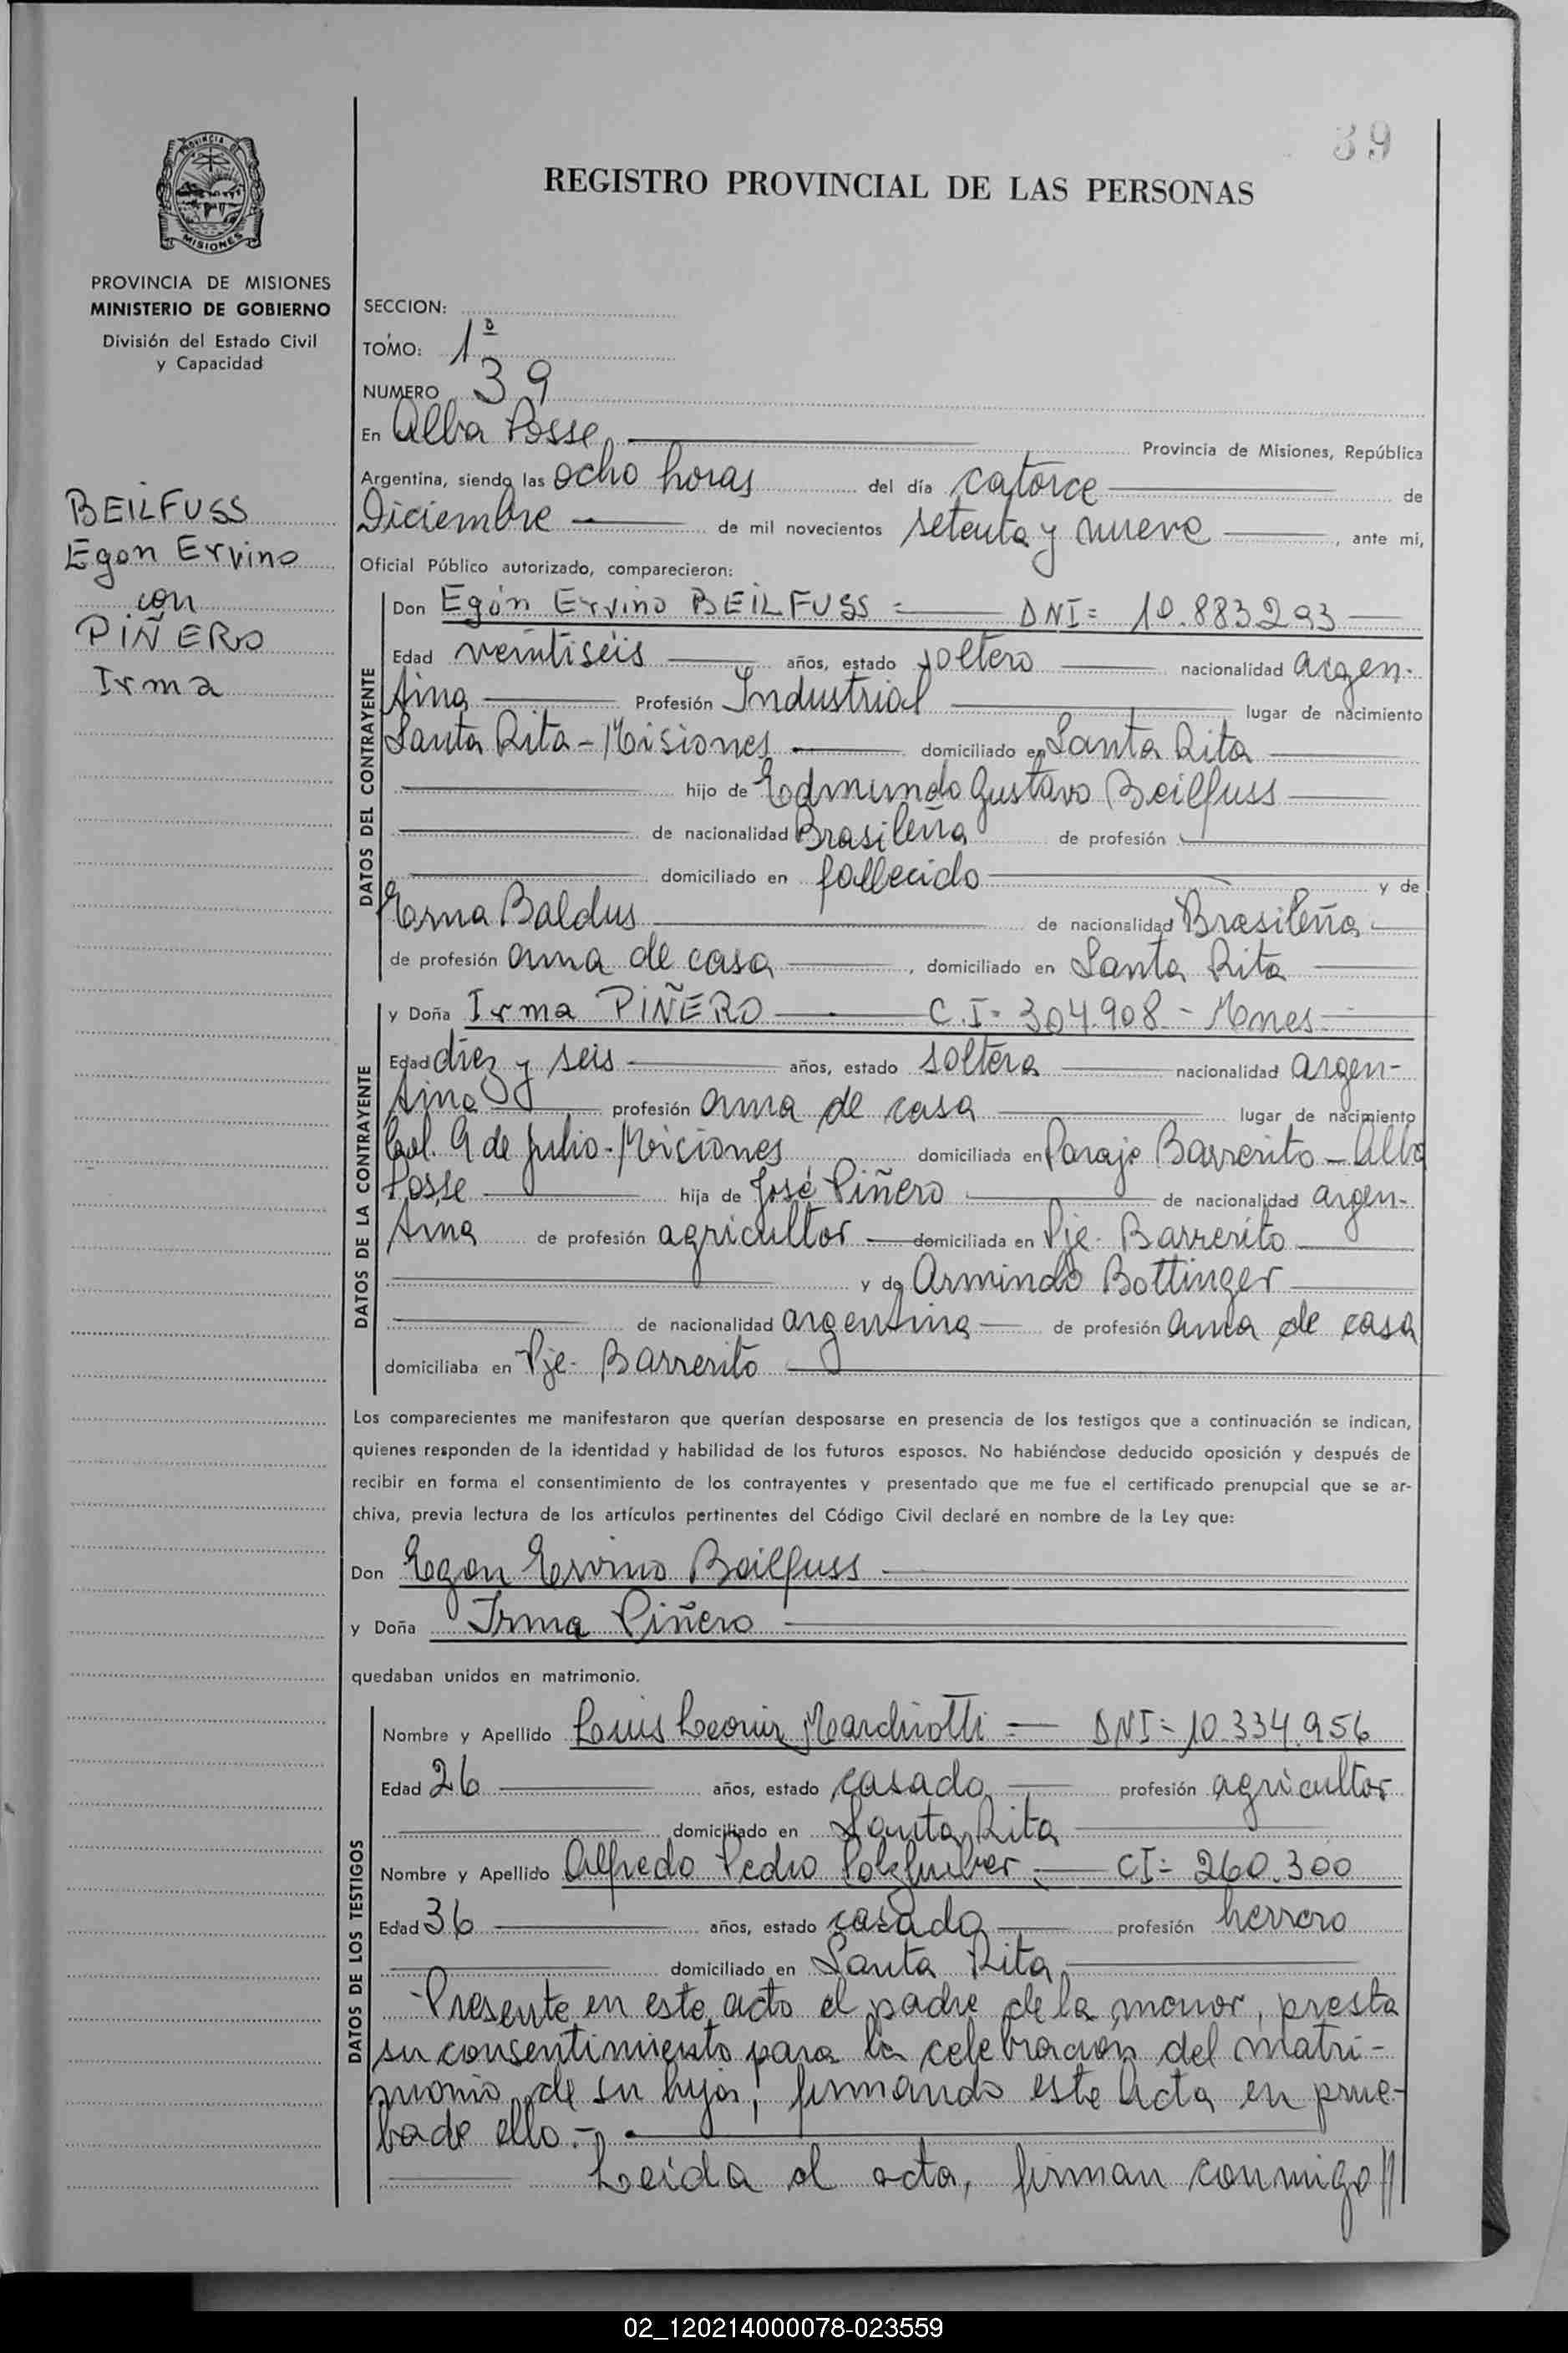 39
REGISTRO PROVINCIAL DE LAS PERSONAS
PROVINCIA DE
MISIONES
PROVINCIA DE MISIONES
MINISTERIO DE GOBIERNO
División del Estado Civil
y Capacidad
BEILFUSS
Egon Ervino
con
PIÑERO
Irma
SECCION:
TOMO: 1º
NUMERO 39
En Alba Posse Provincia de Misiones, República
Argentina, siendo las ocho horas del día catorce de
Diciembre de mil novecientos setenta y nueve, ante mi,
Oficial Público autorizado, comparecieron:
DATOS DEL CONTRAYENTE
Don Egón Ervino BEILFUSS = DNI= 10.883.293
Edad veintiséis años, estado soltero nacionalidad argen-
tina Profesión Industrial lugar de nacimiento
Santa Rita - Misiones domiciliado en Santa Rita
hijo de Edmundo Gustavo Beilfuss
de nacionalidad Brasileña de profesión
domiciliado en fallecido y de
Erna Baldus de nacionalidad Brasileña
de profesión ama de casa, domiciliado en Santa Rita
DATOS DE LA CONTRAYENTE
y Doña Irma PIÑERO C.I= 304.908 - Mnes
Edad diez y seis años, estado soltera nacionalidad argen-
tina profesión ama de casa lugar de nacimiento
Col. 9 de Julio - Miciones domiciliada en Paraje Barrerito - Alba
Posse hija de José Piñero de nacionalidad argen-
tina de profesión agricultor domiciliada en Pje. Barrerito
y de Armindo Bottinger
de nacionalidad argentina de profesión ama de casa
domiciliaba en Pje. Barrerito
Los comparecientes me manifestaron que querían desposarse en presencia de los testigos que a continuación se indican,
quienes responden de la identidad y habilidad de los futuros esposos. No habiéndose deducido oposición y después de
recibir en forma el consentimiento de los contrayentes y presentado que me fue el certificado prenupcial que se ar-
chiva, previa lectura de los artículos pertinentes del Código Civil declaré en nombre de la Ley que:
Don Egon Ervino Beilfuss
y Doña Irma Piñero
quedaban unidos en matrimonio.
DATOS DE LOS TESTIGOS
Nombre y Apellido Luis Leonir Marchiotti = DNI= 10.334.956
Edad 26 años, estado casado profesión agricultor
domiciliado en Santa Rita
Nombre y Apellido Alfredo Pedro CI= 260.300
Edad 36 años, estado casado profesión herrero
domiciliado en Santa Rita
Presente en este acto el padre de la menor, presta
su consentimiento para la celebración del matri-
monio de su hija; firmando este Acta en prue-
ba de ello.-
Leida el acta, firman conmigo//
02_120214000078-023559